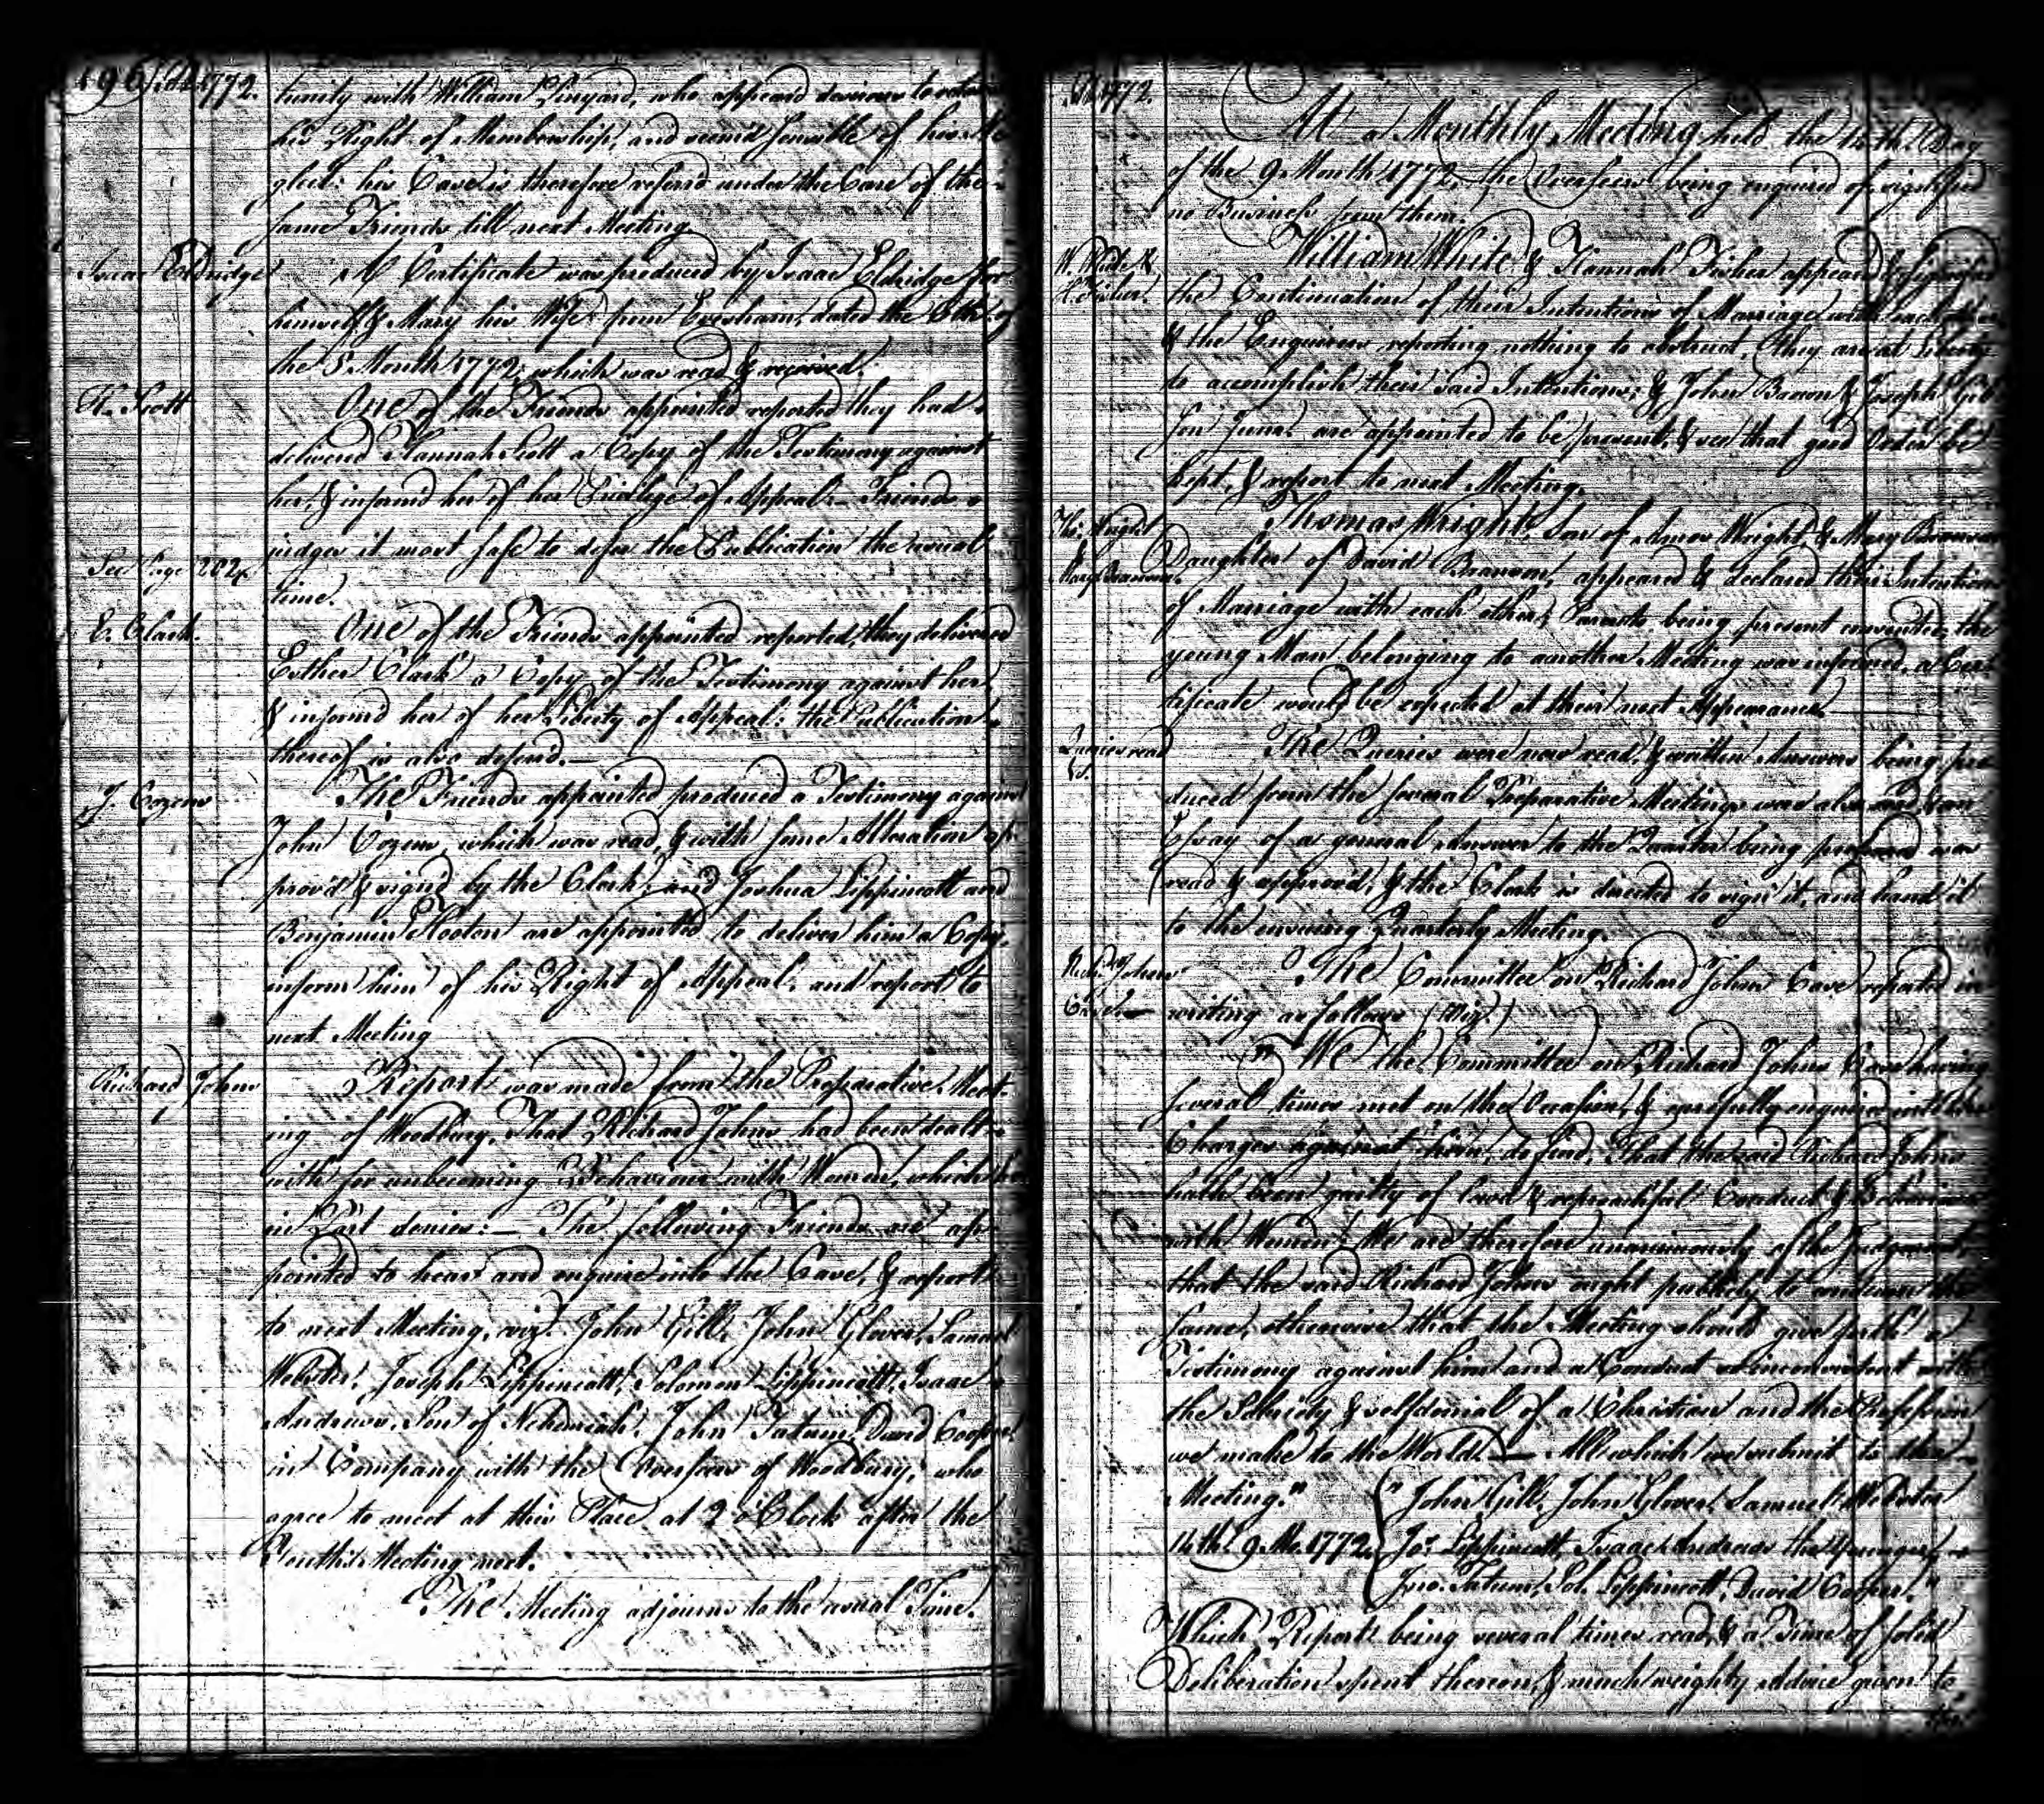 196 1772.
tunity with William Linyard, who appeard desirous to retain
his Right of Membership, and seem'd sensible of his Ne
glect: his Case is therefore referd under the Care of the
same Friends till next Meeting
Isaac Eldridge A Certificate was produced by Isaac Eldridge for
himself & Mary his Wife from Evesham, dated the of
the 8 Month 1772, which was read & received.
H. Scott One of the Friends appointed reported they had
delivered Hannah Scott a Copy of the Testimony against
her, & informd her of her Privilege of Appeal. Friends
judges it most safe to defer the Publication the usual
See Page 202. time.
E. Clark. One of the Friends appointed reported, they delivered
Esther Clark a Copy of the Testimony against her,
& informd her of her Liberty of Appeal: the Publication
thereof is also deferd.
J. Cozens The Friends appointed produced a Testimony against
John Cozens, which was read, & with some Alteration ap
prov'd & signd by the Clark; and Joshua Lippincott and
Benjamin Hooton are appointed to deliver him a Copy,
inform him of his Right of Appeal, and report to
next Meeting
Richard Johns Report was made from the Preparative Meet-
ing of Woodbury, That Richard Johns had been dealt
with for unbecoming Behaviour with Women, which he
in Part denies: The following Friends are ap
pointed to hear and enquire into the Case, & report
to next Meeting, viz. John Gill, John Glover, Samuel
Webster, Joseph Lippincott, Solomon Lippincott, Isaac
Andrews, Son of Nehemiah, John Tatum, David Cooper,
in Company with the Overseers of Woodbury, who
agree to meet at this Place at 2 o'Clock after the
Youth's Meeting next.
The Meeting adjourns to the usual Time.
1772.
At a Monthly Meeting held the 14th Day
of the 9 Month 1772, the Overseers being enquired of, signified
no Business from them.
W. White & William White & Hannah Fisher appeard & signified
H. Fisher. the Continuation of their Intentions of Marriage with each other
& the Enquirers reporting nothing to obstruct, they are at Liberty
to accomplish their said Intentions; & John Brown & Joseph Gib
son Junr. are appointed to be present, & see that good Order be
kept, & report to next Meeting.
Tho. Wright Thomas Wright, Son of Amos Wright, & Mary Branson
& Mary Branson. Daughter of David Branson, appeared & declared their Intention
of Marriage with each other, Parents being present consented, the
young Man belonging to another Meeting was informed, a Cer-
tificate would be expected at their next Appearance.
Queries read The Queries were now read, & written Answers being pro
&c. duced from the several Preparative Meetings were also read, & an
Essay of a general Answer to the Quarter being produced was
read & approved, & the Clark is directed to sign it, and hand it
to the ensuing Quarterly Meeting.
Richd. Johns The Committee on Richard Johns Case reported in
Case. writing as follows (Viz.)
" We the Committee on Richard Johns Case having
several times met on the Occasion, & carefully enquired into the
Charges against him, do find, That the said Richard Johns
hath been guilty of lewd & reproachful Conduct & Behaviour
with Women: We are therefore unanimously of the Judgment,
that the said Richard Johns ought publicly to condemn the
same, otherwise that the Meeting should give forth a
Testimony against him and a Conduct so inconsistent with
the Sobriety & selfdenial of a Christian and the Profession
we make to the World. All which we submit to the
Meeting." " John Gill, John Glover, Samuel Webster
14th. 9 Mo. 1772. Jos. Lippincott, Isaac Andrews the Younger,
Jno. Tatum, Sol. Lippincott, David Cooper."
Which Report being several times read, & a Time of solid
Deliberation spent thereon, & much weighty Advice given to